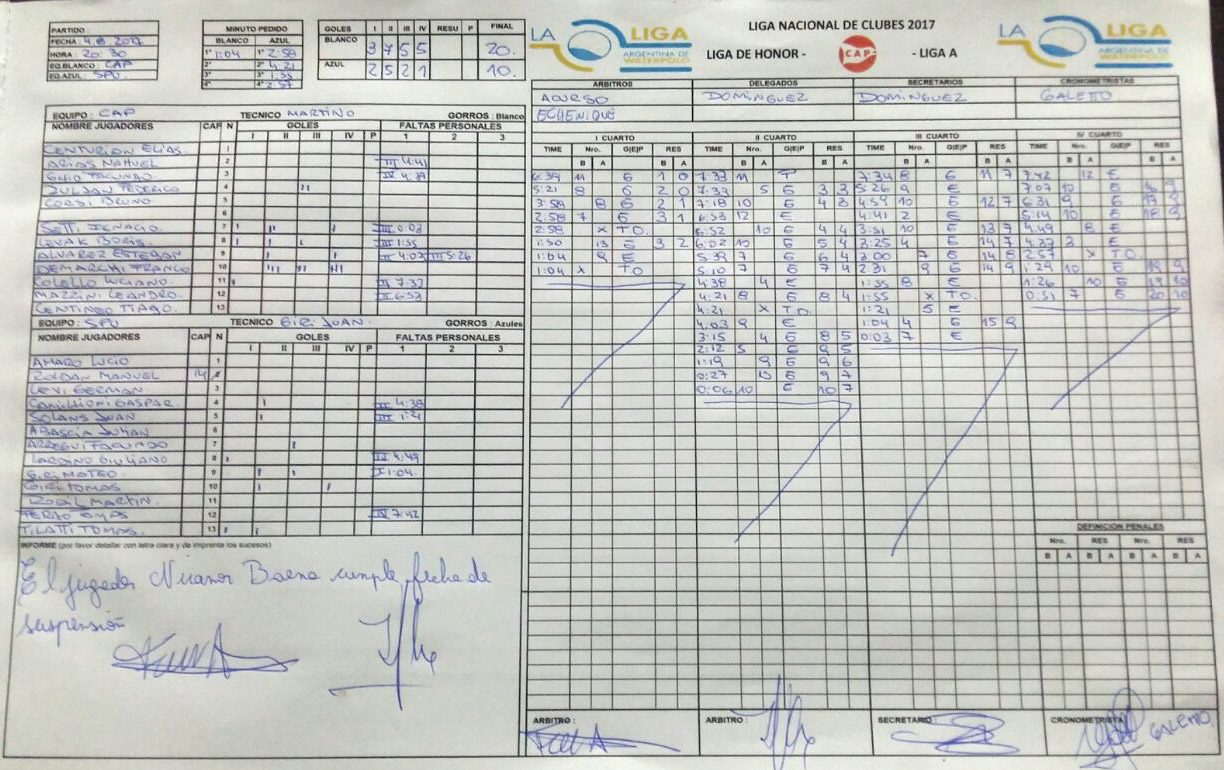 PARTIDO :
FECHA : 4.8.2017
HORA : 20:30
EQ.BLANCO : CAP
EQ.AZUL : SPU
MINUTO PEDIDO
BLANCO AZUL
1° 1:04 1° 2:58
2° 2° 4:21
3° 3° 1:55
4° 4° 2:57
GOLES I II III IV RESU P FINAL
BLANCO 3 7 5 5 20.
AZUL 2 5 2 1 10.
LA LIGA
ARGENTINA DE
WATERPOLO
LIGA NACIONAL DE CLUBES 2017
LIGA DE HONOR CAP - LIGA A
LA LIGA
ARGENTINA DE
WATERPOLO
ARBITROS DELEGADOS SECRETARIOS CRONOMETRISTAS
DOMINGUEZ DOMINGUEZ GALETTO
ECHENIQUE
EQUIPO : CAP TECNICO MARTINO GORROS : Blanco
NOMBRE JUGADORES CAP N GOLES FALTAS PERSONALES
I II III IV P 1 2 3
CENTURION ELIAS 1
ARIAS NAHUEL 2 III 4:41
GHIO FACUNDO 3
4
CORDI BRUNO 5
6
SETTI IGNACIO 7 III 0:03
LEVAK BORIS 8 III 1:55
ALVAREZ ESTEBAN 9 II 4:03 III 5:26
DEMARCHI FRANCO 10
COLELLO LUCIANO 11 II 7:33
MAZZINI LEANDRO 12 II 6:53
TIAGO 13
EQUIPO : SPU TECNICO GIRI JUAN GORROS : Azules
NOMBRE JUGADORES CAP N GOLES FALTAS PERSONALES
I II III IV P 1 2 3
AMARO LUCIO 1
ROLDAN MANUEL 14 2
LEVI GERMAN 3
CAMILLIONI GASPAR 4 II 4:38
SOLANS JUAN 5 III 1:21
ABASCIA JULIAN 6
ARREGUI FACUNDO 7
GIULIANO 8 IV 4:49
GIRI MATEO 9 I 1:04
GIRI TOMAS 10
MARTIN 11
12 IV 7:42
TILATTI TOMAS 13
INFORME (por favor detallar con letra clara y de imprenta los sucesos)
El jugador Nicanor Baena cumple fecha de
suspensión
I CUARTO II CUARTO III CUARTO IV CUARTO
TIME Nro. G|E|P RES TIME Nro. G|E|P RES TIME Nro. G|E|P RES TIME Nro. G|E|P RES
B A B A B A B A B A B A B A B A
6:39 11 G 1 0 7:33 11 P 7:34 8 G 11 7 7:42 12 E
5:21 8 G 2 0 7:33 5 G 3 3 5:26 9 E 7:07 10 G 16 9
3:58 8 G 2 1 7:18 10 G 4 3 4:59 10 G 12 7 6:31 9 G 17 9
2:58 7 G 3 1 6:53 12 E 4:41 2 E 5:14 10 G 18 9
2:58 x T.O. 6:52 10 G 4 4 3:51 10 G 13 7 4:49 8 E
1:50 13 G 3 2 6:02 10 G 5 4 3:25 4 G 14 7 4:27 3 E
1:04 9 E 5:39 7 G 6 4 3:00 7 G 14 8 2:57 x T.O.
1:04 x TO 5:10 7 G 7 4 2:31 9 G 14 9 1:29 10 G 19 9
4:38 4 E 1:55 8 E 1:26 10 G 19 10
4:21 8 G 8 4 1:55 x T.O. 0:51 7 G 20 10
4:21 x T.O. 1:21 5 E
4:03 9 E 1:04 4 G 15 9
3:15 4 G 8 5 0:03 7 E
2:12 5 G 9 5
1:19 9 G 9 6
0:27 13 G 9 7
0:06 10 G 10 7
DEFINICION PENALES
Nro. RES Nro. RES
B A B A B A B A
ARBITRO : ARBITRO : SECRETARIO : CRONOMETRISTA :
GALETTO